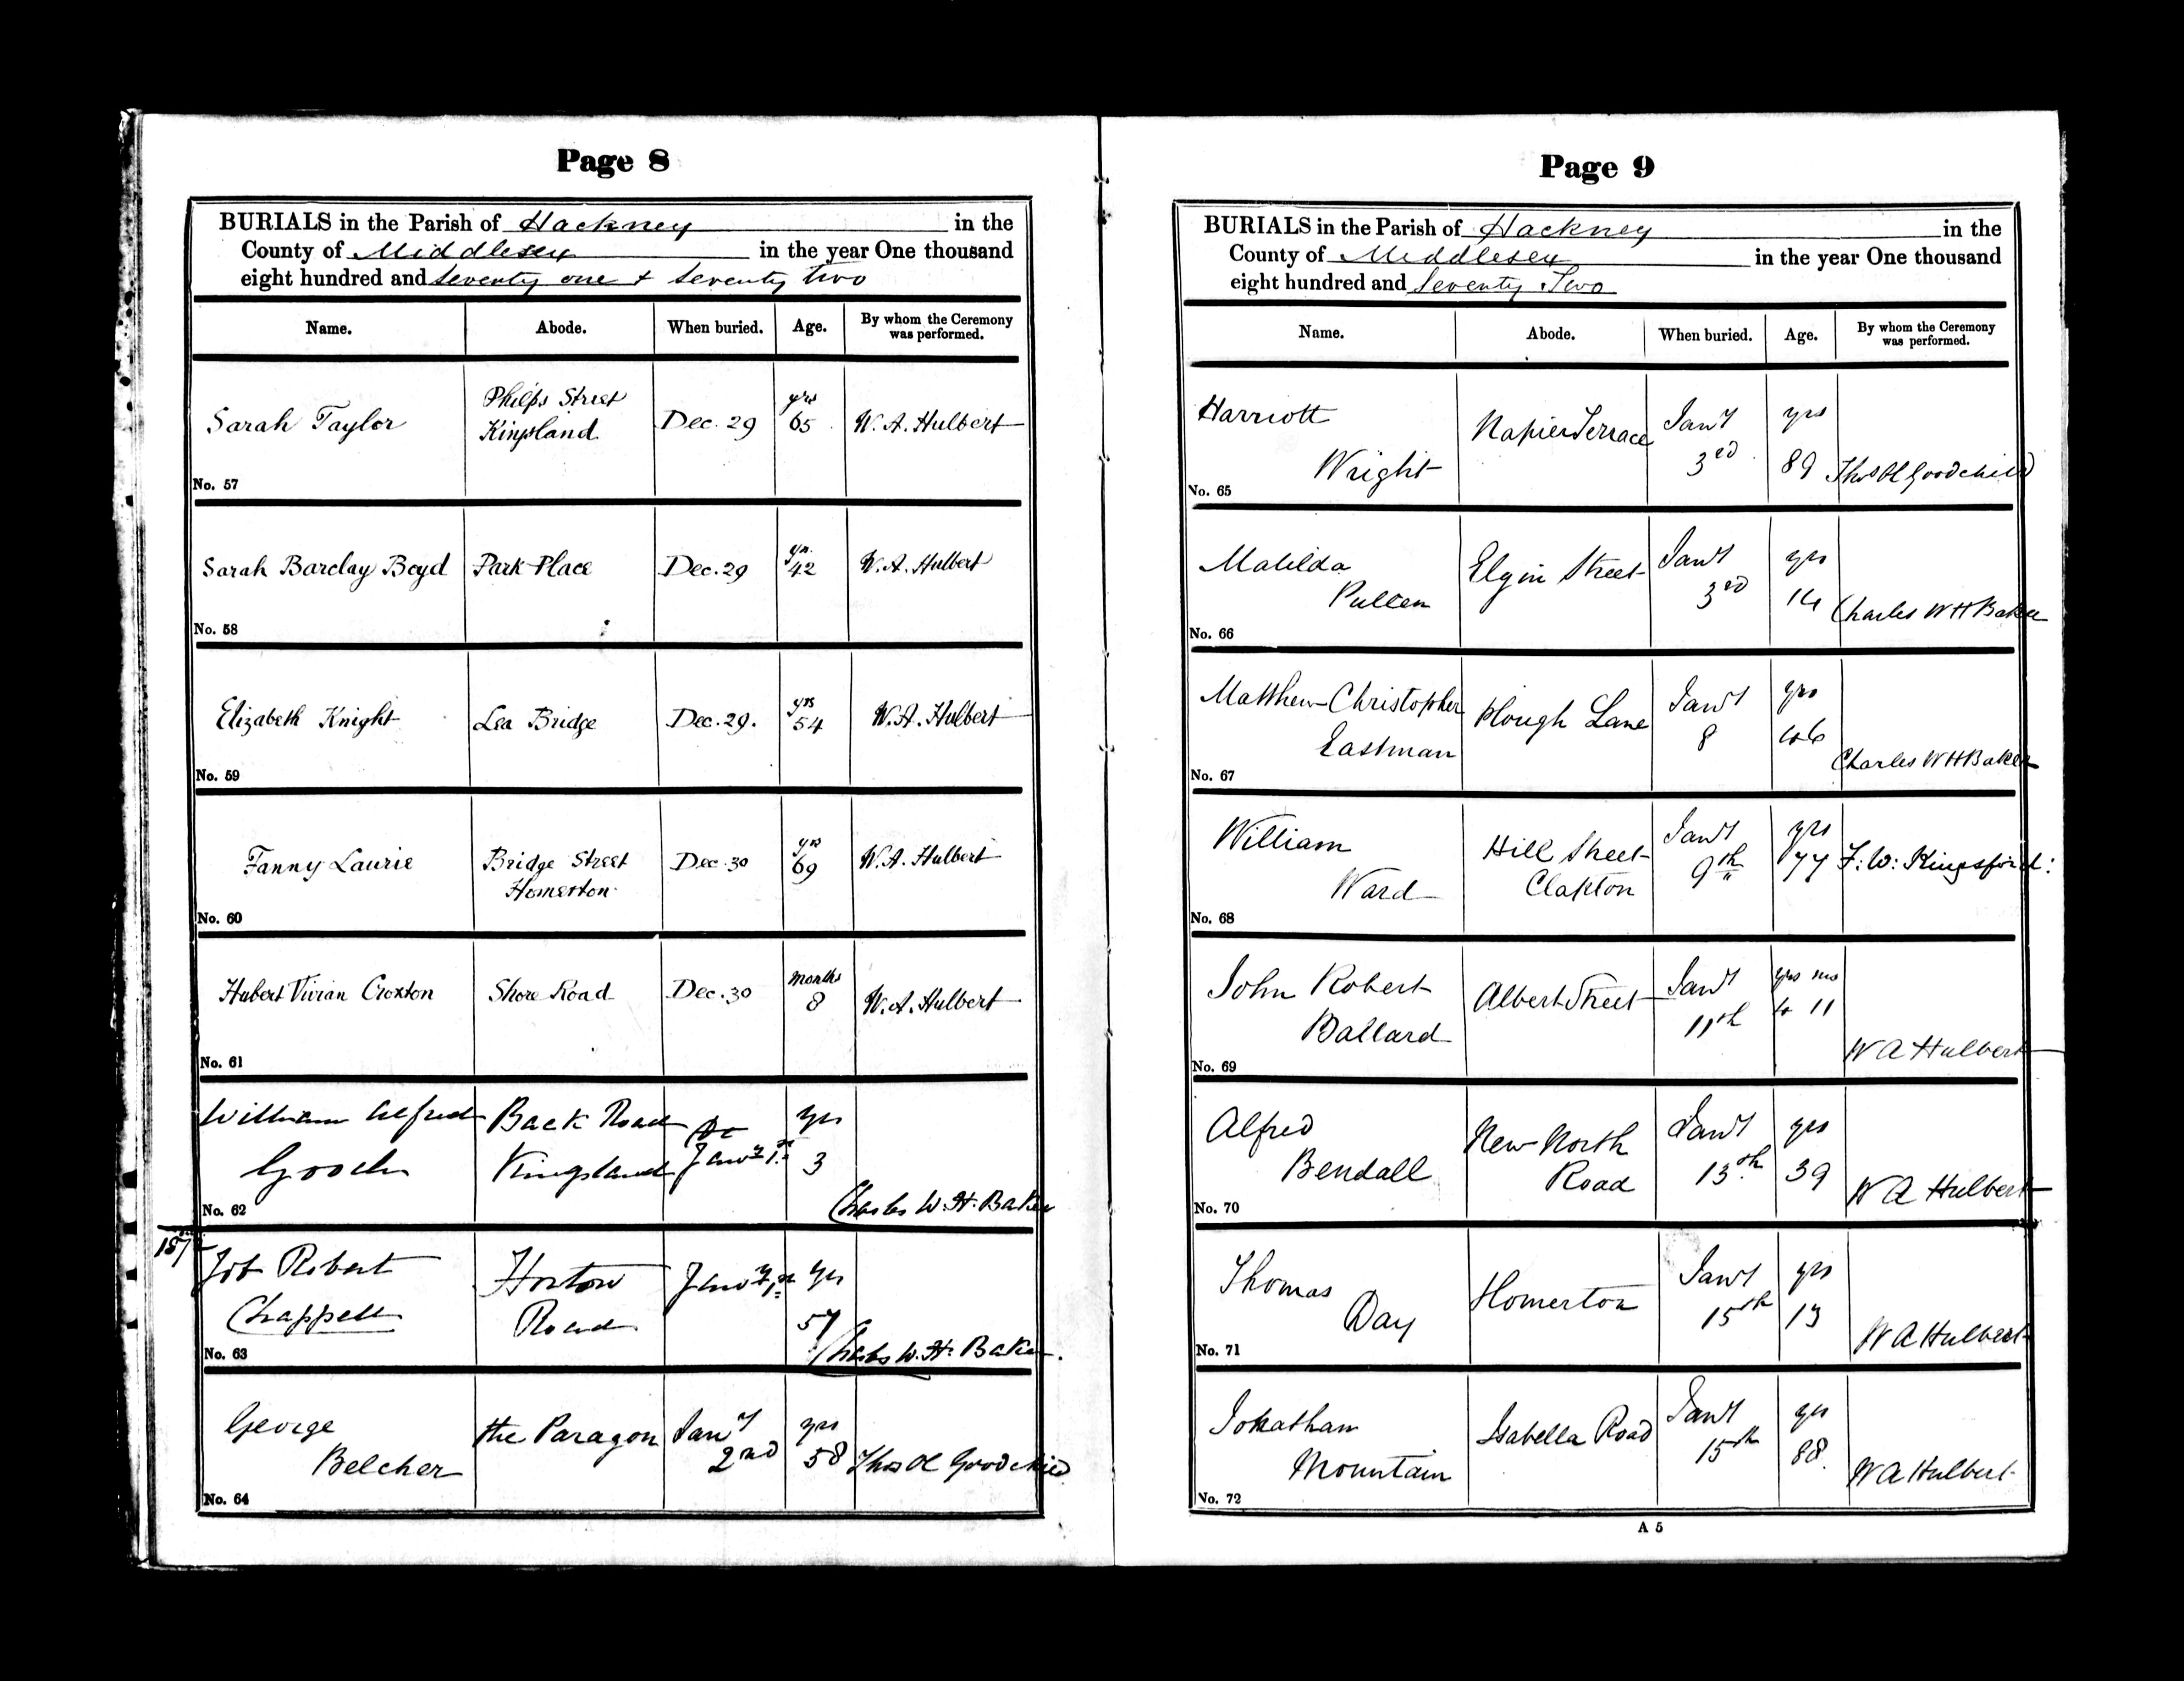 Page 8
BURIALS in the Parish of Hackney in the
County of Middlesex in the year One thousand
eight hundred and seventy one + seventy two
Name. Abode. When buried. Age. By whom the Ceremony was performed.
yrs
Philps Street
Sarah Taylor Kingsland Dec. 29 65 W. A. Hulbert
No. 57
yrs
Sarah Barclay Boyd Park Place Dec. 29 42 W. A. Hulbert
No. 58
yrs
Elizabeth Knight Lea Bridge Dec. 29. 54 W. A. Hulbert
No. 59
yrs
Fanny Laurie Bridge Street Dec. 30 69 W. A. Hulbert
Homerton
No. 60
Months
Hubert Vivian Croxton Shore Road Dec. 30 8 W. A. Hulbert
No. 61
William Alfred Back Road yrs
Gooch Kingsland Jany 1st 3
No. 62 Charles W. H. Baker
1872
Job Robert Horton Jany 1st yrs
Chappell Road 57
No. 63 Charles W. H. Baker
George the Paragon Jany yrs
Belcher 2nd 58 Thos H Goodchild
No. 64
Page 9
BURIALS in the Parish of Hackney in the
County of Middlesex in the year One thousand
eight hundred and Seventy Two
Name. Abode. When buried. Age. By whom the Ceremony was performed.
Harriott Napier Terrace Jany yrs
Wright 3rd 89 Thos H Goodchild
No. 65
Matilda Elgin Street Jany yrs
Pullen 3rd 14 Charles W H Baker
No. 66
Matthew Christopher Plough Lane Jany yrs
Eastman 8 46
No. 67 Charles W H Baker
William Hill Street Jany yrs
Ward Clapton 9th 77 F: W: Kingsford:
No. 68
John Robert Albert Street Jany yrs ms
Ballard 11th 4 11
No. 69 W A Hulbert
Alfred New North Jany yrs
Bendall Road 13th 39 W A Hulbert
No. 70
Thomas Homerton Jany yrs
Day 15th 13
No. 71 W A Hulbert
Jonathan Isabella Road Jany yrs
Mountain 15th 88 W A Hulbert
No. 72
A 5